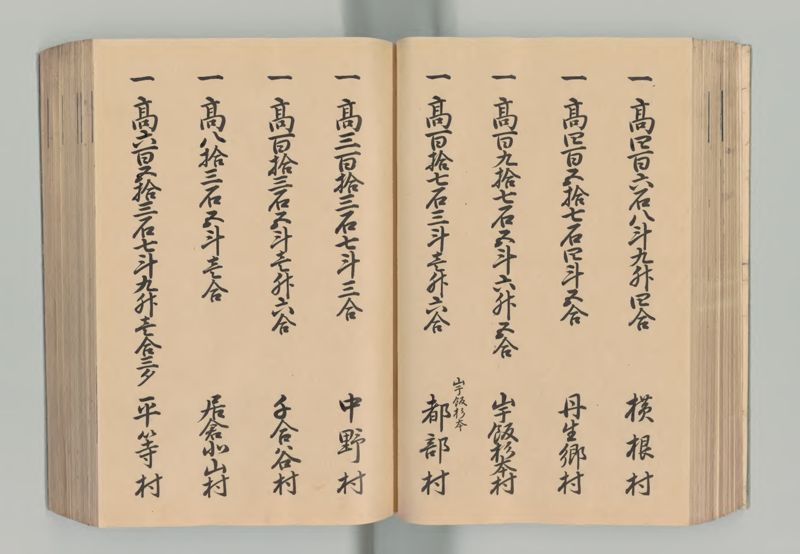 一 高四百六石八斗九升四合 横根村
一 高四百五拾七石四斗五合 丹生郷村
一 高百九拾七石五斗六升五合 宇飯杉本村
宇飯杉本
一 高百拾七石三斗壱升六合 都部村
一 高三百拾三石七斗三合 中野村
一 高百拾三石五斗壱升六合 千合谷村
一 高八拾三石五斗壱合 居倉小山村
一 高六百五拾三石七斗九升壱合三夕 平等村